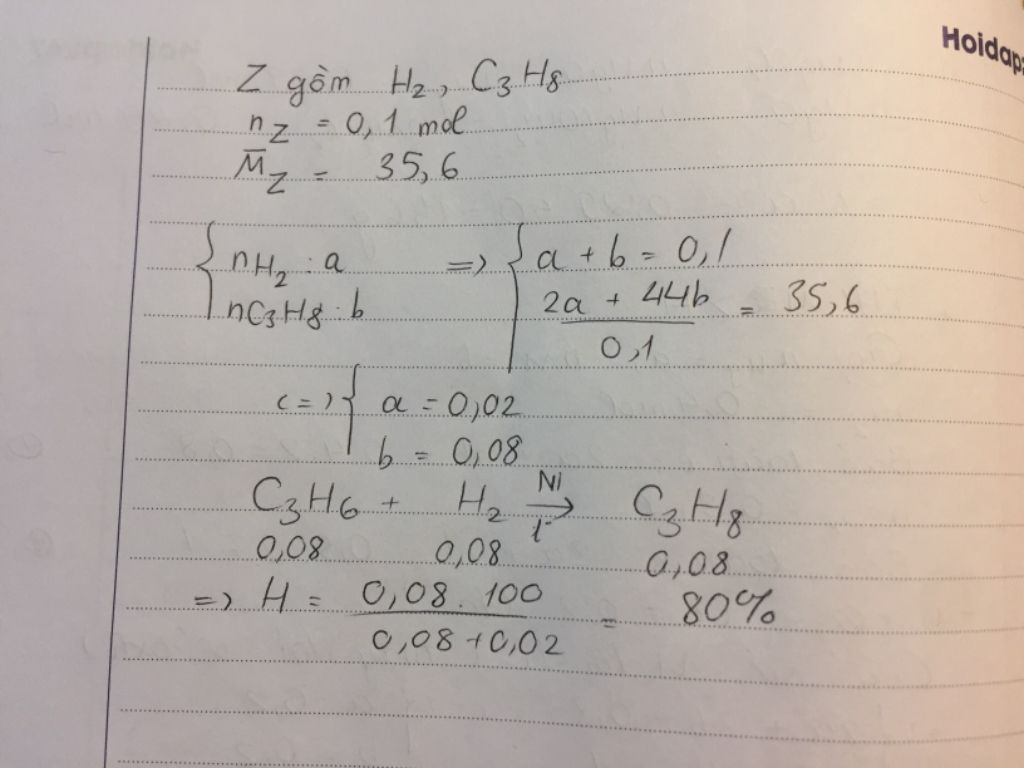 Hoidap
Z gồm H₂, C₃H₈
n_Z = 0,1 mol
M̅_Z = 35,6
{ nH₂ : a => { a + b = 0,1
nC₃H₈ : b (2a + 44b)/0,1 = 35,6
(=) { a = 0,02
b = 0,08
C₃H₆ + H₂ →(Ni, t°) C₃H₈
0,08 0,08 0,08
=> H = (0,08 . 100)/(0,08 + 0,02) = 80%